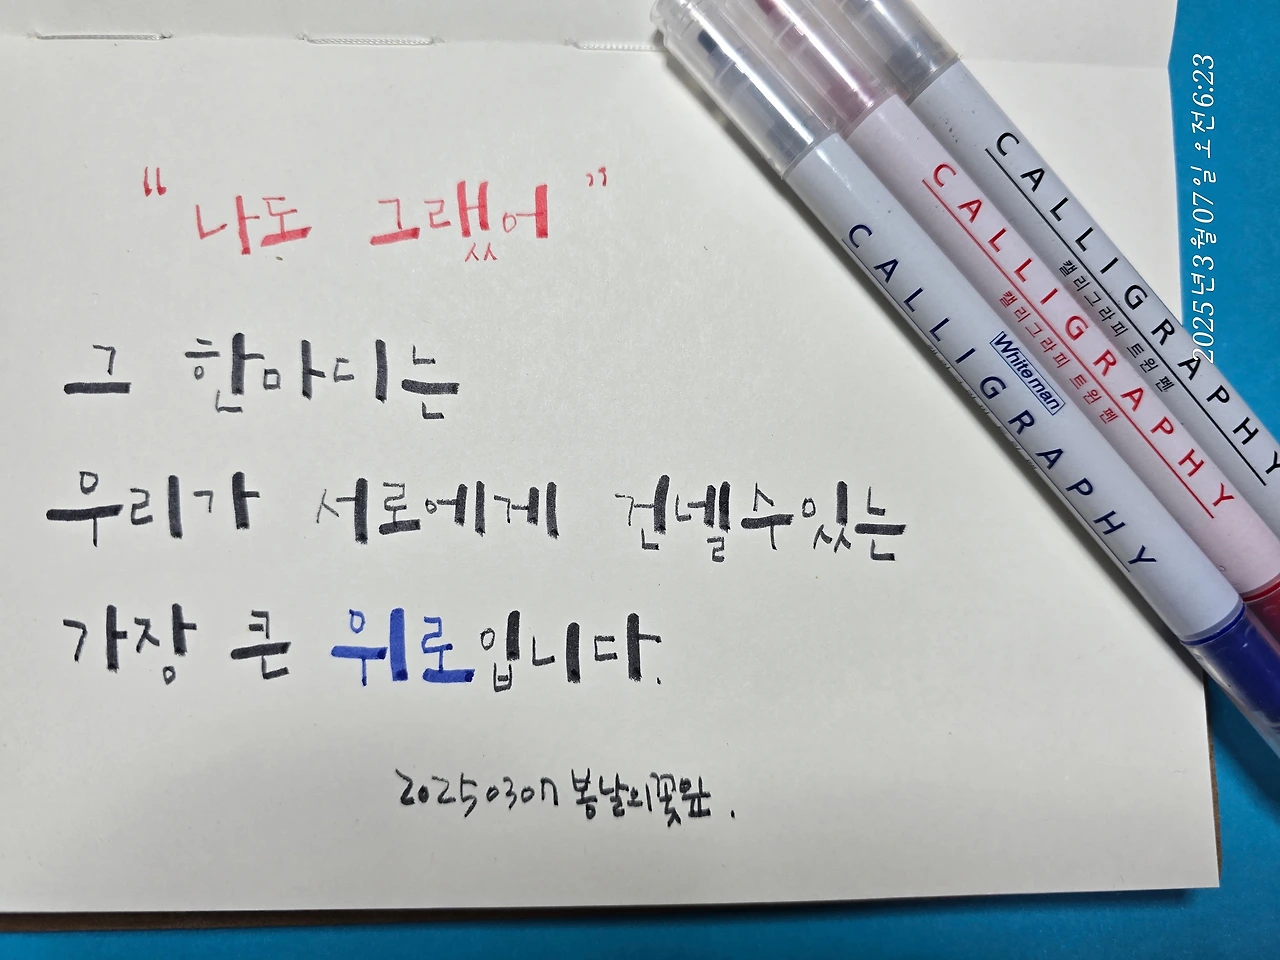 "나도 그랬어"
그 한마디는
우리가 서로에게 건넬수있는
가장 큰 위로입니다.
20250307 봄날의꽃잎.
CALLIGRAPHY
Whiteman
CALLIGRAPHY
캘리그라피 트윈 펜
CALLIGRAPHY
캘리그라피 트윈 펜
2025년3월07일 오전6:23